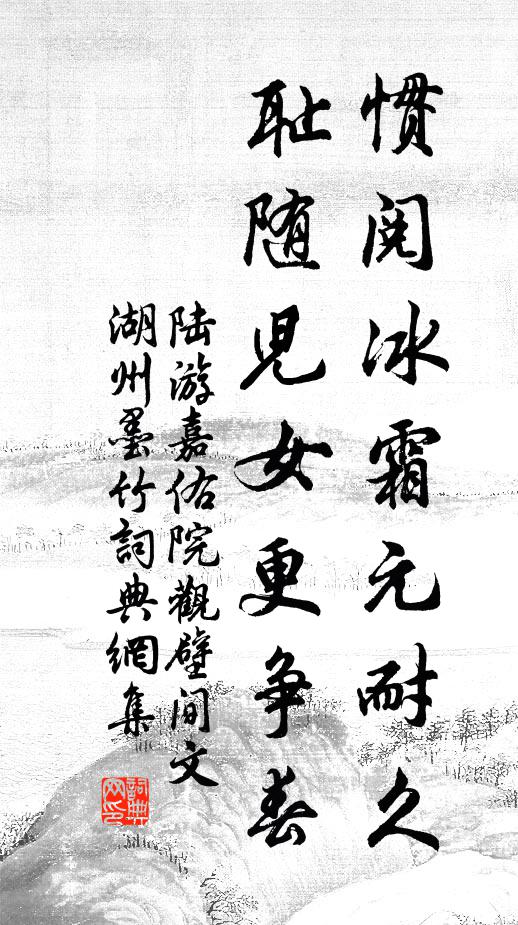 惯阅冰霜元耐久
耻随儿女更争春
陆游嘉佑院觀壁间文
湖州墨竹詞典網集
詞典
网印